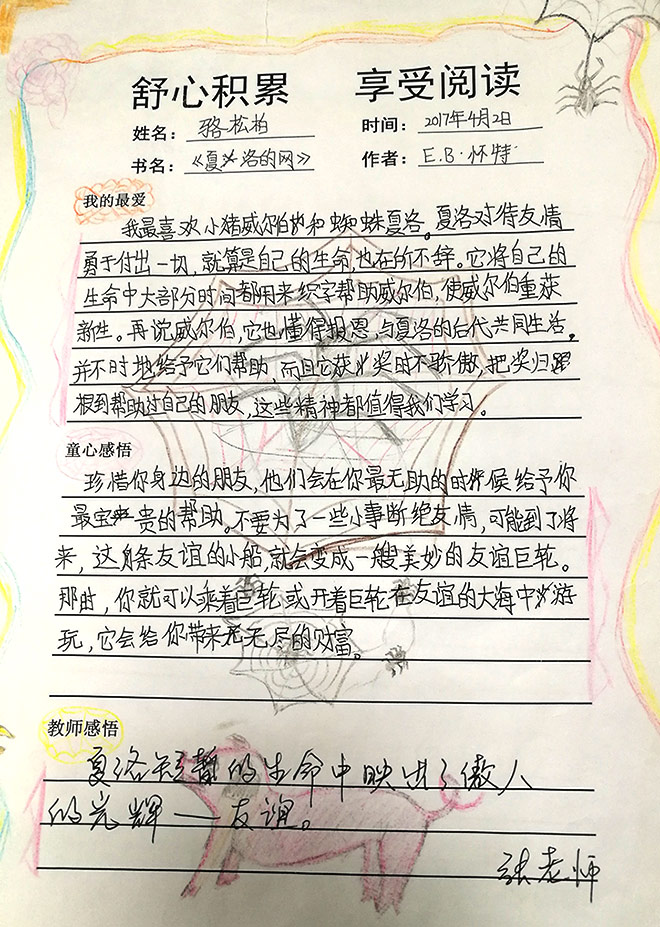 舒心积累 享受阅读
姓名：骆松柏 时间：2017年4月2日
书名：《夏洛的网》 作者：E.B.怀特
我的最爱
我最喜欢小猪威尔伯和蜘蛛夏洛。夏洛对待友情
勇于付出一切，就算是自己的生命，也在所不辞。它将自己的
生命中大部分时间都用来织字帮助威尔伯，使威尔伯重获
新生。再说威尔伯，它也懂得报恩，与夏洛的后代共同生活，
并不时地给予它们帮助，而且它获奖时不骄傲，把奖归
根到帮助过自己的朋友，这些精神都值得我们学习。
童心感悟
珍惜你身边的朋友，他们会在你最无助的时候给予你
最宝贵的帮助。不要为了一些小事断绝友情，可能到了将
来，这条友谊的小船，就会变成一艘美妙的友谊巨轮。
那时，你就可以乘着巨轮或开着巨轮在友谊的大海中游
玩，它会给你带来无尽的财富。
教师感悟
夏洛短暂的生命中映进了傲人
的光辉——友谊。
张老师